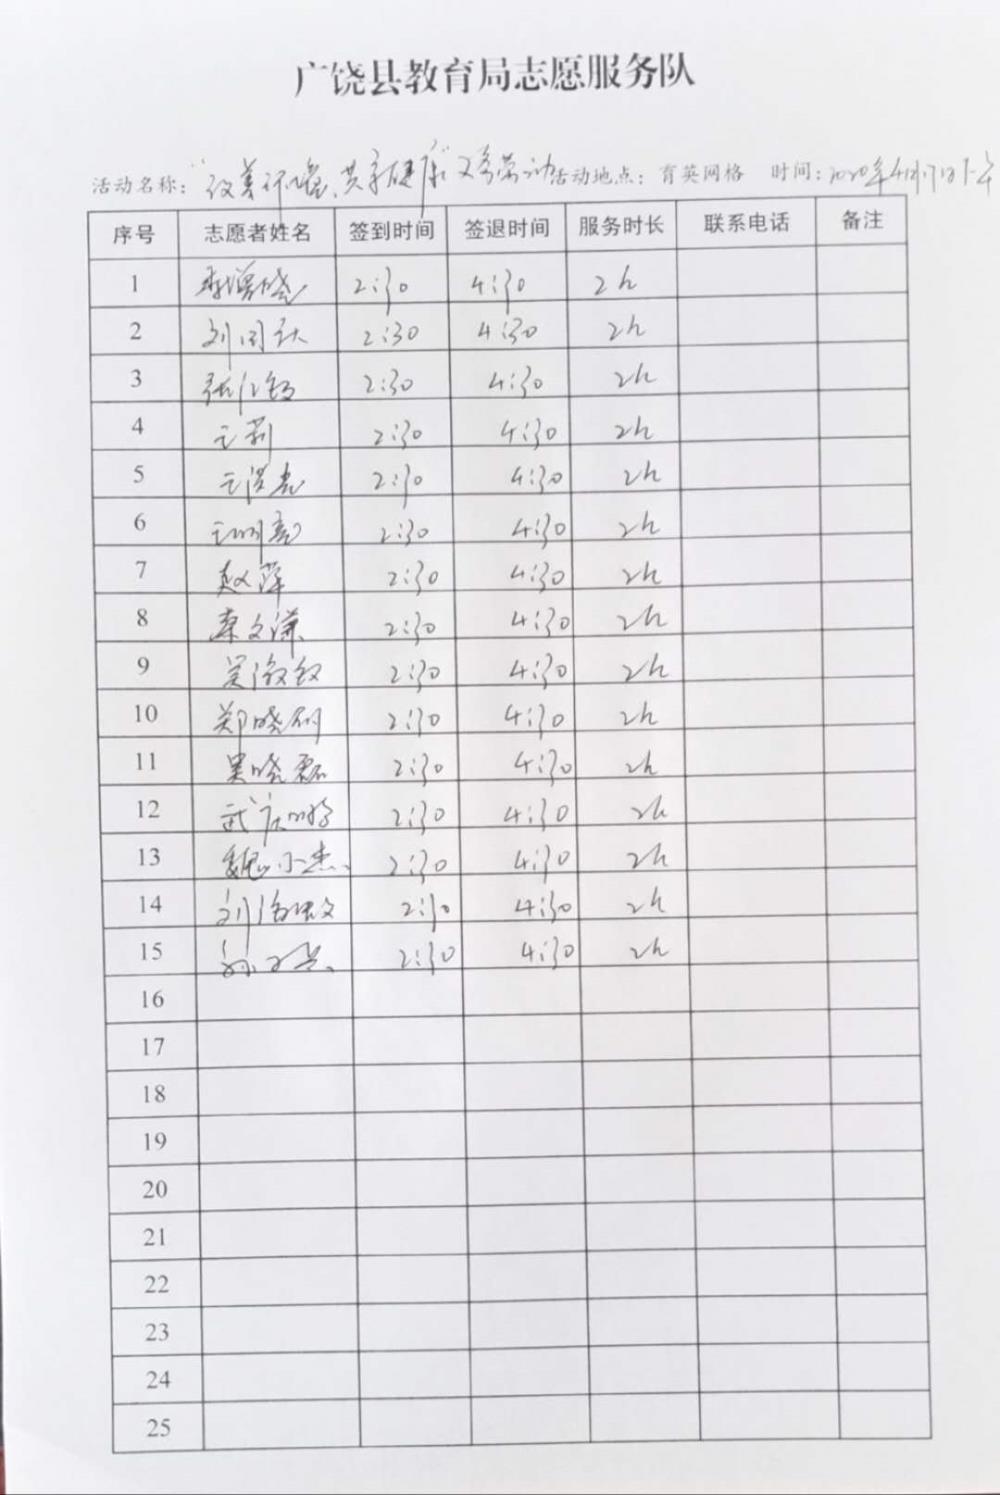 广饶县教育局志愿服务队
活动名称：" 环境、共享健康"义务劳动 活动地点：育英网格 时间：2020年4月17日下午
序号 志愿者姓名 签到时间 签退时间 服务时长 联系电话 备注
1 李增晓 2:30 4:30 2h
2 刘同秋 2:30 4:30 2h
3 2:30 4:30 2h
4 王莉 2:30 4:30 2h
5 王洪亮 2:30 4:30 2h
6 王明亮 2:30 4:30 2h
7 赵萍 2:30 4:30 2h
8 秦文谦 2:30 4:30 2h
9 2:30 4:30 2h
10 郑晓刚 2:30 4:30 2h
11 吴晓磊 2:30 4:30 2h
12 武 2:30 4:30 2h
13 魏小杰 2:30 4:30 2h
14 刘 2:30 4:30 2h
15 孙 2:30 4:30 2h
16
17
18
19
20
21
22
23
24
25